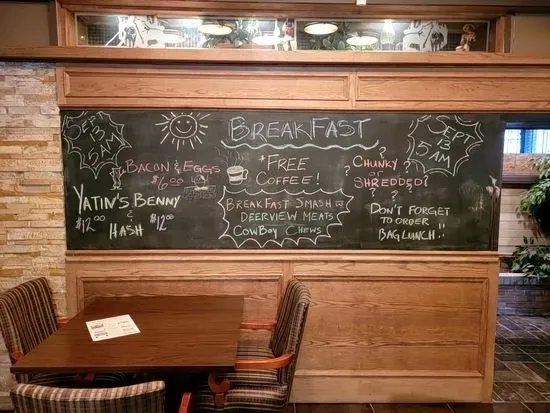 SEPT
13
5AM
BACON & EGGS
$6.00
YATIN'S BENNY
$12.00 & $12.00
HASH
BREAKFAST
*FREE
COFFEE!
BREAKFAST SMASH
DEERVIEW MEATS
COWBOY CHEWS
CHUNKY
OR
SHREDDED
? ? ? ?
DON'T FORGET
TO ORDER
BAG LUNCH!!
SEPT
13
5AM